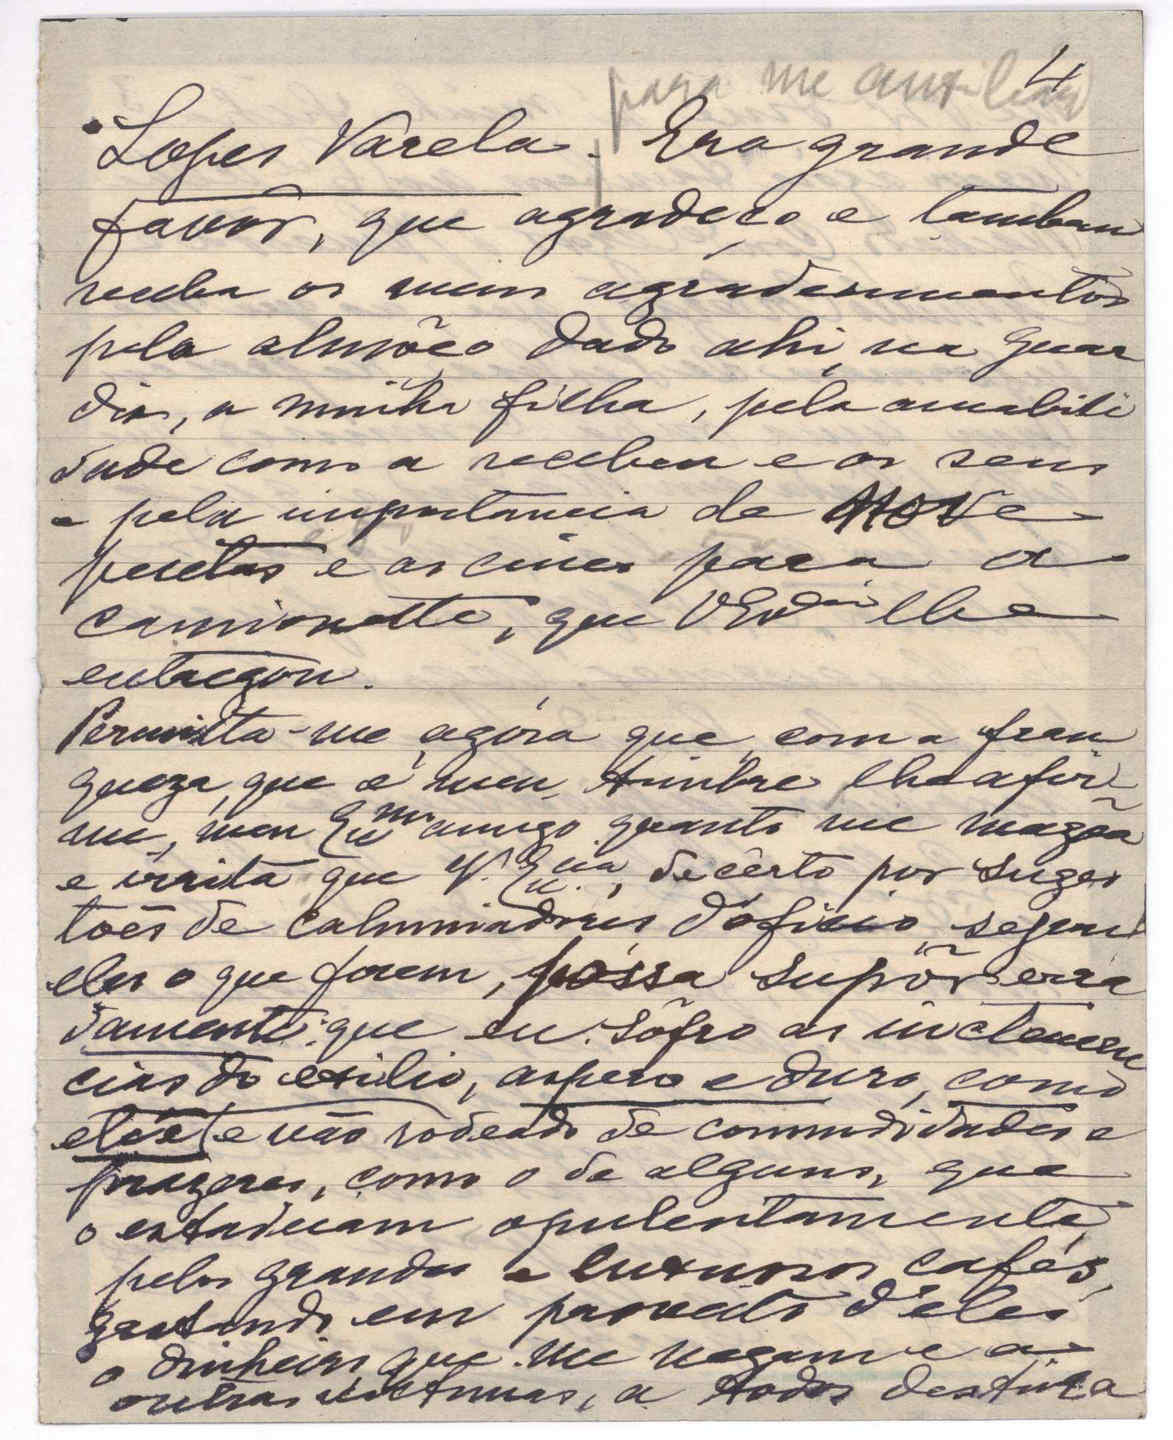 4
para me auxiliar
Lopes Varela. Era grande
favor, que agradeço e tambem
receba os meus agradecimentos
pelo almôço dado ahi, na Guar
dia, a minha filha, pela amabili
dade como a recebeu e os seus
e pela importancia de nove
pesetas e as cinco para a
camionette, que V. lhe
entregou.
Permitta-me agóra que, com a fran
queza, que é meu timbre, lhe afir
me, meu Exmo amigo quanto me magôa
e irrita que V. Excia, decérto por suges
tões de caluminadores d'oficio, sejam
eles o que forem, póssa supôr erra
damente: que eu sôfro as inclemen
cias do exilio, aspero e duro, como
elle é e não rodeado de commodidades e
prazeres, como o de alguns, que
o estadeiam opulentamente
pelos grandes e luxuosos cafés,
gastando em proveito d'eles
o dinheiro que me negam e a
outras victimas, a todos destina